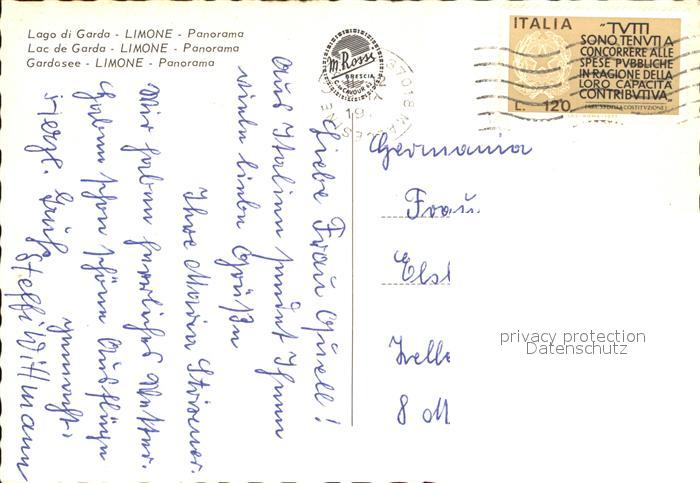 Lago di Garda - LIMONE - Panorama
Lac de Garda - LIMONE - Panorama
Gardosee - LIMONE - Panorama
M. Rossi
BRESCIA
37018 MALCESINE
19
ITALIA
"TVTTI
SONO TENVTI A
CONCORRERE ALLE
SPESE PVBBLICHE
IN RAGIONE DELLA
LORO CAPACITA
CONTRIBVTIVA"
L. 120
Liebe Frau
Aus Italien sendet Ihnen
viele liebe Grüße
Ihre Maria
Wir haben herrliches Wetter.
Haben schon schöne Ausflüge
gemacht.
Herzl. Grüße
Steffi Wittmann
Germania
Frau
Els
Zell
8 M
privacy protection
Datenschutz